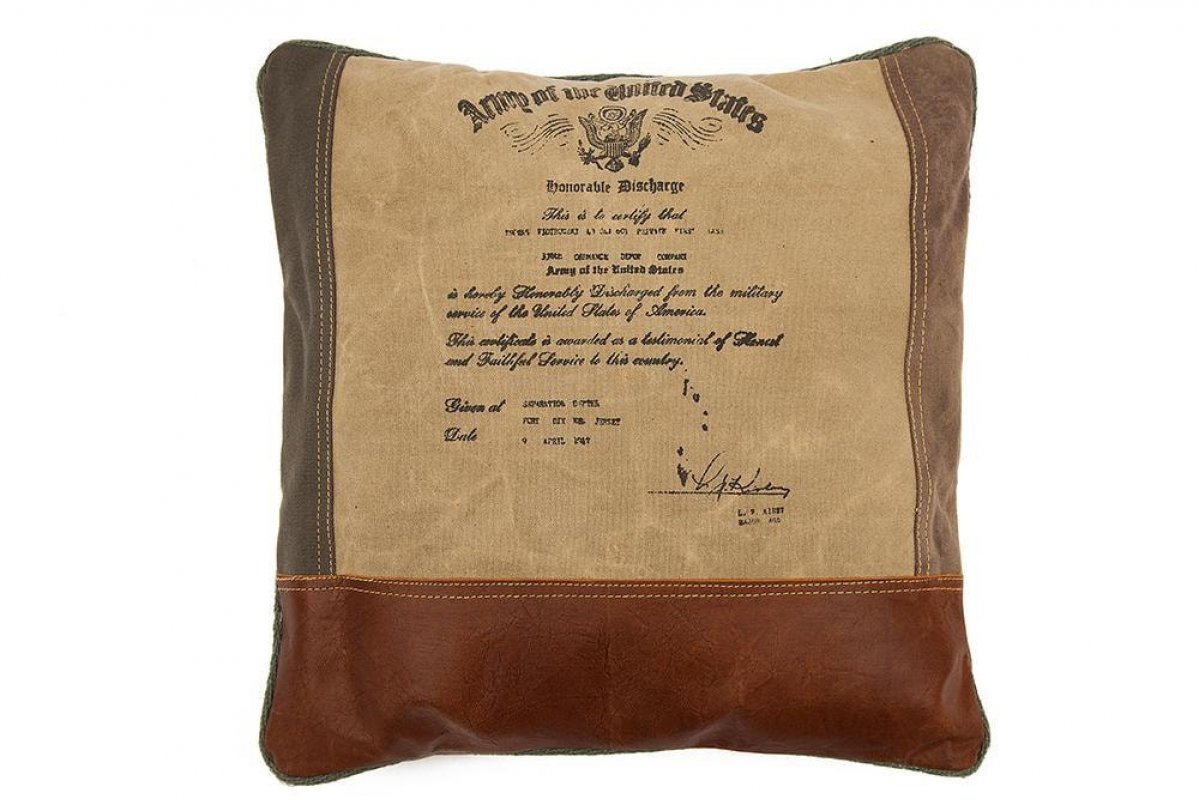 Army of the United States
Honorable Discharge
This is to certify that
PRIVATE FIRST
ORDNANCE DEPOT COMPANY
Army of the United States
is hereby Honorably Discharged from the military
service of the United States of America.
This certificate is awarded as a testimonial of Honest
and Faithful Service to this country.
Given at SEPARATION CENTER
FORT DIX NEW JERSEY
Date 9 APRIL
MAJOR